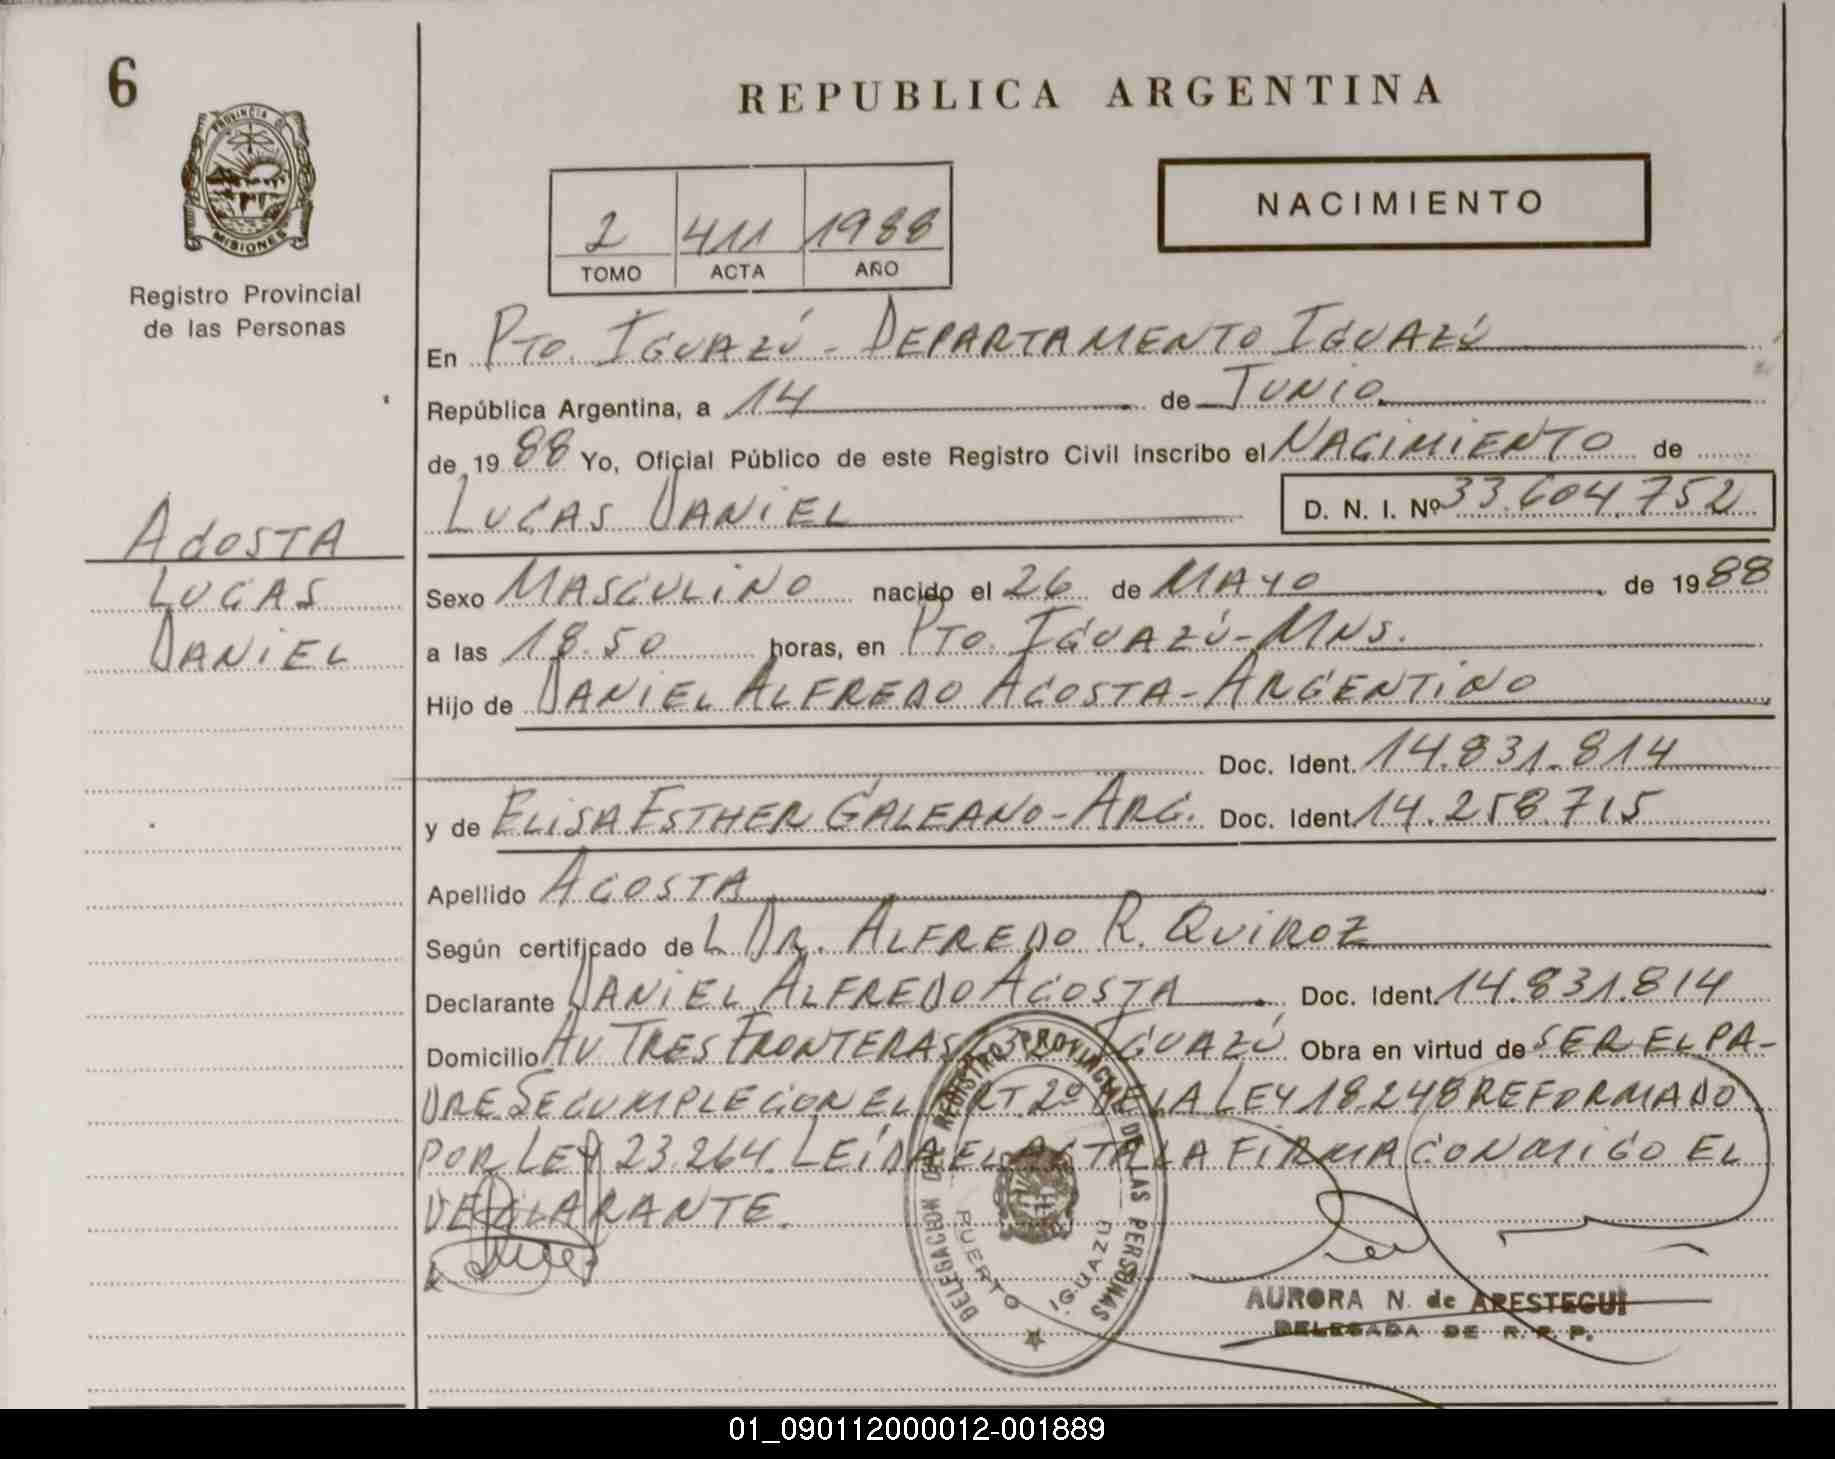 6
REPUBLICA ARGENTINA
PROVINCIA DE
MISIONES
NACIMIENTO
2 411 1988
TOMO ACTA AÑO
Registro Provincial
de las Personas
En Pto. IGUAZÚ - DEPARTAMENTO IGUAZÚ
República Argentina, a 14 de JUNIO
de 1988 Yo, Oficial Público de este Registro Civil inscribo el NACIMIENTO de
LUCAS DANIEL D. N. I. Nº 33.604.752
ACOSTA
LUCAS
DANIEL
Sexo MASCULINO nacido el 26 de MAYO de 1988
a las 18.50 horas, en Pto. IGUAZÚ - MNS.
Hijo de DANIEL ALFREDO ACOSTA - ARGENTINO
Doc. Ident. 14.831.814
y de ELISA ESTHER GALEANO - ARG. Doc. Ident. 14.258.715
Apellido ACOSTA
Según certificado de L DR. ALFREDO R. QUIROZ
Declarante DANIEL ALFREDO ACOSTA Doc. Ident. 14.831.814
Domicilio AV TRES FRONTERAS IGUAZÚ Obra en virtud de SER EL PA-
DRE SE CUMPLE CON EL ART 2º DE LA LEY 18.248 REFORMADO
POR LEY 23.264. LEÍDA EL ACTA LA FIRMA CONMIGO EL
DECLARANTE.
DELEGACION DEL REGISTRO PROVINCIAL DE LAS PERSONAS
PUERTO IGUAZU
AURORA N. de ARESTEGUI
DELEGADA DE R. P. P.
01_090112000012-001889